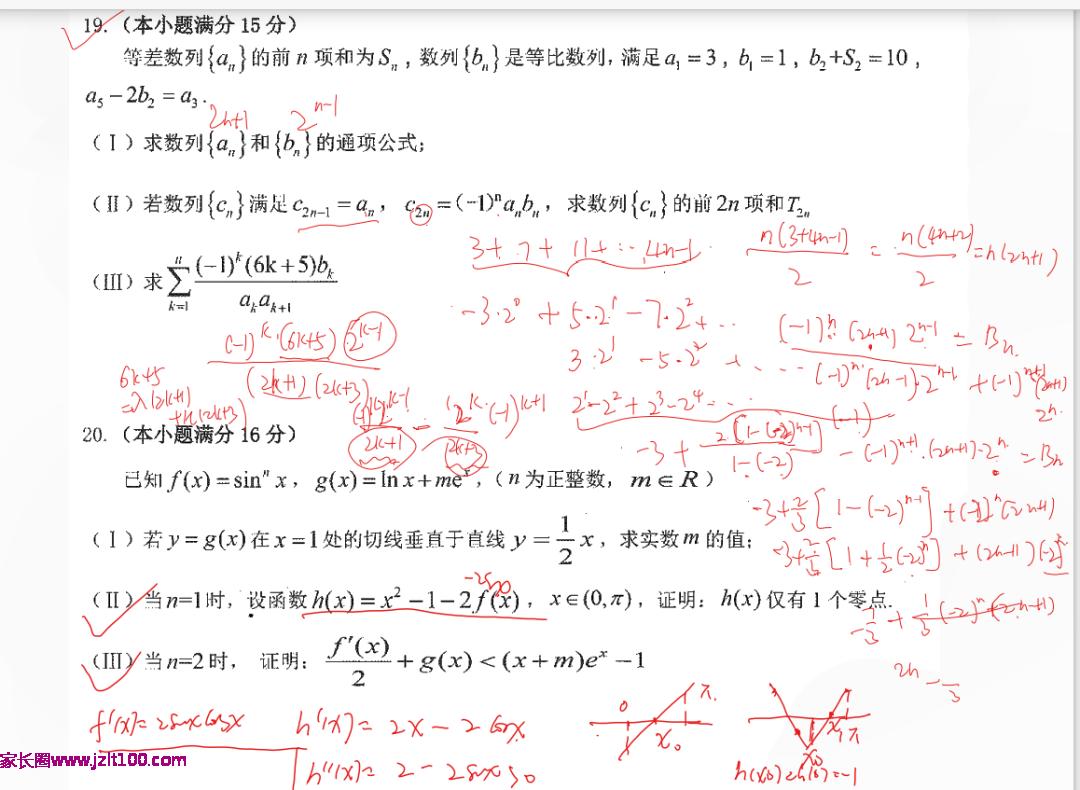 19.（本小题满分 15 分）
等差数列{aₙ}的前 n 项和为 Sₙ，数列{bₙ}是等比数列，满足 a₁ = 3，b₁ = 1，b₂+S₂ = 10，
a₅ − 2b₂ = a₃.
2n+1 2^{n-1}
（Ⅰ）求数列{aₙ}和{bₙ}的通项公式；
（Ⅱ）若数列{cₙ}满足 c_{2n−1} = aₙ， c_{2n} = (−1)ⁿaₙbₙ，求数列{cₙ}的前 2n 项和 T_{2n}
3+7+11+…4n-1 n(3+4n-1)/2 = n(4n+2)/2 = n(2n+1)
（Ⅲ）求 ∑_{k=1}^{n} (−1)^k(6k+5)b_k / (a_k a_{k+1})
-3·2⁰ + 5·2¹ - 7·2² + … (-1)ⁿ·(2n+1) 2^{n-1} = Bn
(-1)^k·(6k+5) 2^{k-1} / (2k+1)(2k+3)
3·2¹ - 5·2² + … (-1)ⁿ·(2n-1)·2^{n-1} + (-1)^{n+1}(2n+1) 2ⁿ
6k+5
=λ(2k+1)
+μ(2k+3)
2¹-2²+2³-2⁴…
20.（本小题满分 16 分）
-3 + 2[1-(-2)^{n-1}]/1-(-2) - (-1)^{n+1}·(2n+1)·2ⁿ = Bn
已知 f(x) = sinⁿ x，g(x) = ln x + meˣ，（n 为正整数， m ∈ R ）
-3+2/3[1-(-2)^{n-1}]
（Ⅰ）若 y = g(x) 在 x = 1 处的切线垂直于直线 y = 1/2 x，求实数 m 的值；
-3+2/3[1+1/2(-2)ⁿ] + (2n+1)(-2)ⁿ
（Ⅱ）当 n=1 时，设函数 h(x) = x² − 1 − 2f(x)，x ∈ (0, π)，证明：h(x) 仅有 1 个零点.
（Ⅲ）当 n=2 时， 证明：f′(x)/2 + g(x) < (x + m)eˣ − 1
f'(x)= 2sinxcosx h'(x)= 2x - 2cosx 0 x₀ π x₀ x₁ π
h''(x)= 2 - 2sinx h(x₀)<h(0)=-1
家长圈www.jzlt100.com